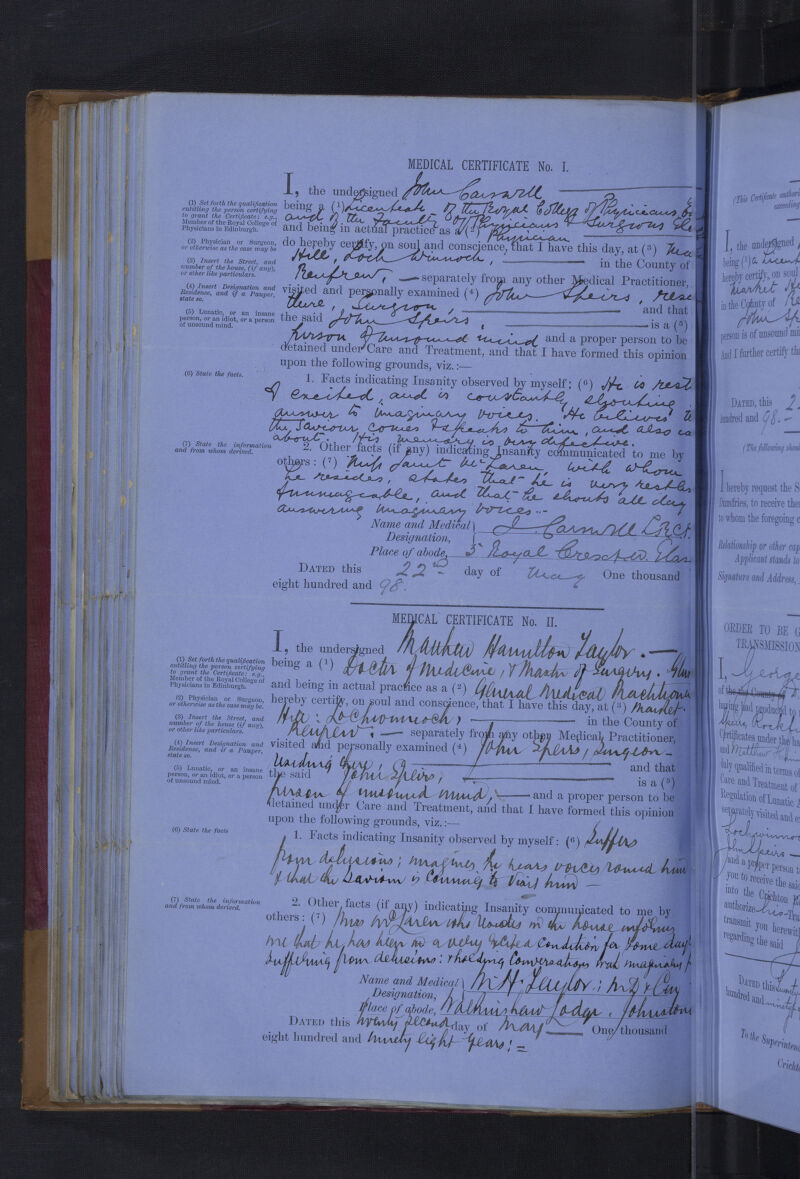 MEDICAL CERTIFICATE No. I.
(1) Set forth the qualification entitling the person certifying to grant the Certificate: e.g., Member of the Royal College of Physicians in Edinburgh.
(2) Physician or Surgeon, or otherwise as the case may be
(3) Insert the Street, and number of the house, (if any), or other like particulars.
(4) Insert Designation and Residence, and if a Pauper, state so.
(5) Lunatic, or an insane person, or an idiot, or a person of unsound mind.
(6) State the facts.
(7) State the information and from whom derived.
I, the undersigned John Carswell
being a (1) Licentiate of the Royal College of Physicians
and of the Faculty of Physicians & Surgeons
and being in actual practice as a (2) Physician
do hereby certify, on soul and conscience, that I have this day, at (3)
Hill, Loch Winnoch, in the County of
Renfrew, separately from any other Medical Practitioner,
visited and personally examined (4) John Speirs,
there, Surgeon, and that
the said John Speirs, is a (5)
person of unsound mind and a proper person to be
detained under Care and Treatment, and that I have formed this opinion
upon the following grounds, viz.:—
1. Facts indicating Insanity observed by myself: (6) He is rest
& excited, and is constantly shouting
answers to imaginary voices. He believes
the Saviour comes & speaks to him, and also is
about. His memory is very defective.
2. Other facts (if any) indicating Insanity communicated to me by
others: (7) Miss Janet McLaren, with whom
he resides, states that he is very restless
unmanageable, and that he shouts all day
answering imaginary voices.
Name and Medical Designation, J Carswell
Place of abode, 5 Royal Crescent
DATED this 22nd day of May One thousand
eight hundred and 98.
MEDICAL CERTIFICATE No. II.
(1) Set forth the qualification entitling the person certifying to grant the Certificate: e.g., Member of the Royal College of Physicians in Edinburgh.
(2) Physician or Surgeon, or otherwise as the case may be.
(3) Insert the Street, and number of the house (if any), or other like particulars.
(4) Insert Designation and Residence, and if a Pauper, state so.
(5) Lunatic, or an insane person, or an idiot, or a person of unsound mind.
(6) State the facts
(7) State the information and from whom derived.
I, the undersigned Matthew Hamilton Taylor.
being a (1) Doctor of Medicine, & Master of Surgery.
and being in actual practice as a (2) General Medical Practitioner
hereby certify, on soul and conscience, that I have this day, at (3) Market
Hill: Lochwinnoch, in the County of
Renfrew, separately from any other Medical Practitioner,
visited and personally examined (4) John Speirs, Surgeon
residing there, and that
the said John Speirs, is a (5)
person of unsound mind, and a proper person to be
detained under Care and Treatment, and that I have formed this opinion
upon the following grounds, viz.:—
1. Facts indicating Insanity observed by myself: (6) Suffers
from delusions; imagines he hears voices round him
& that the Saviour is coming to visit him
2. Other facts (if any) indicating Insanity communicated to me by
others: (7) Miss McLaren who resides in the house informs
me that he has been in a very excited condition for some days
suffering from delusions: & holding conversations with imaginary
Name and Medical Designation, M H Taylor; M.D & C.M
Place of abode, Lodge. Johnstone
DATED this twenty second day of May One thousand
eight hundred and ninety eight years;
I, the undersigned
being (1) a
hereby certify, on soul
Market
in the County of
person is of unsound
And I further certify
DATED, this
hundred and 98.
I hereby request the
Dumfries, to receive
to whom the foregoing
Relationship or other
Applicant stands to
Signature and Address,
ORDER TO BE
TRANSMISSION
I, George
of the County of
having had produced to
Certificates under the
and Matthew
duly qualified in terms of
Care and Treatment of
Regulation of Lunatic
separately visited and
Lochwinnoch
John Speirs
and a proper person
you to receive the said
into the Crichton
authorize
transmit you herewith
regarding the said
DATED this
hundred and
To the Superintendent